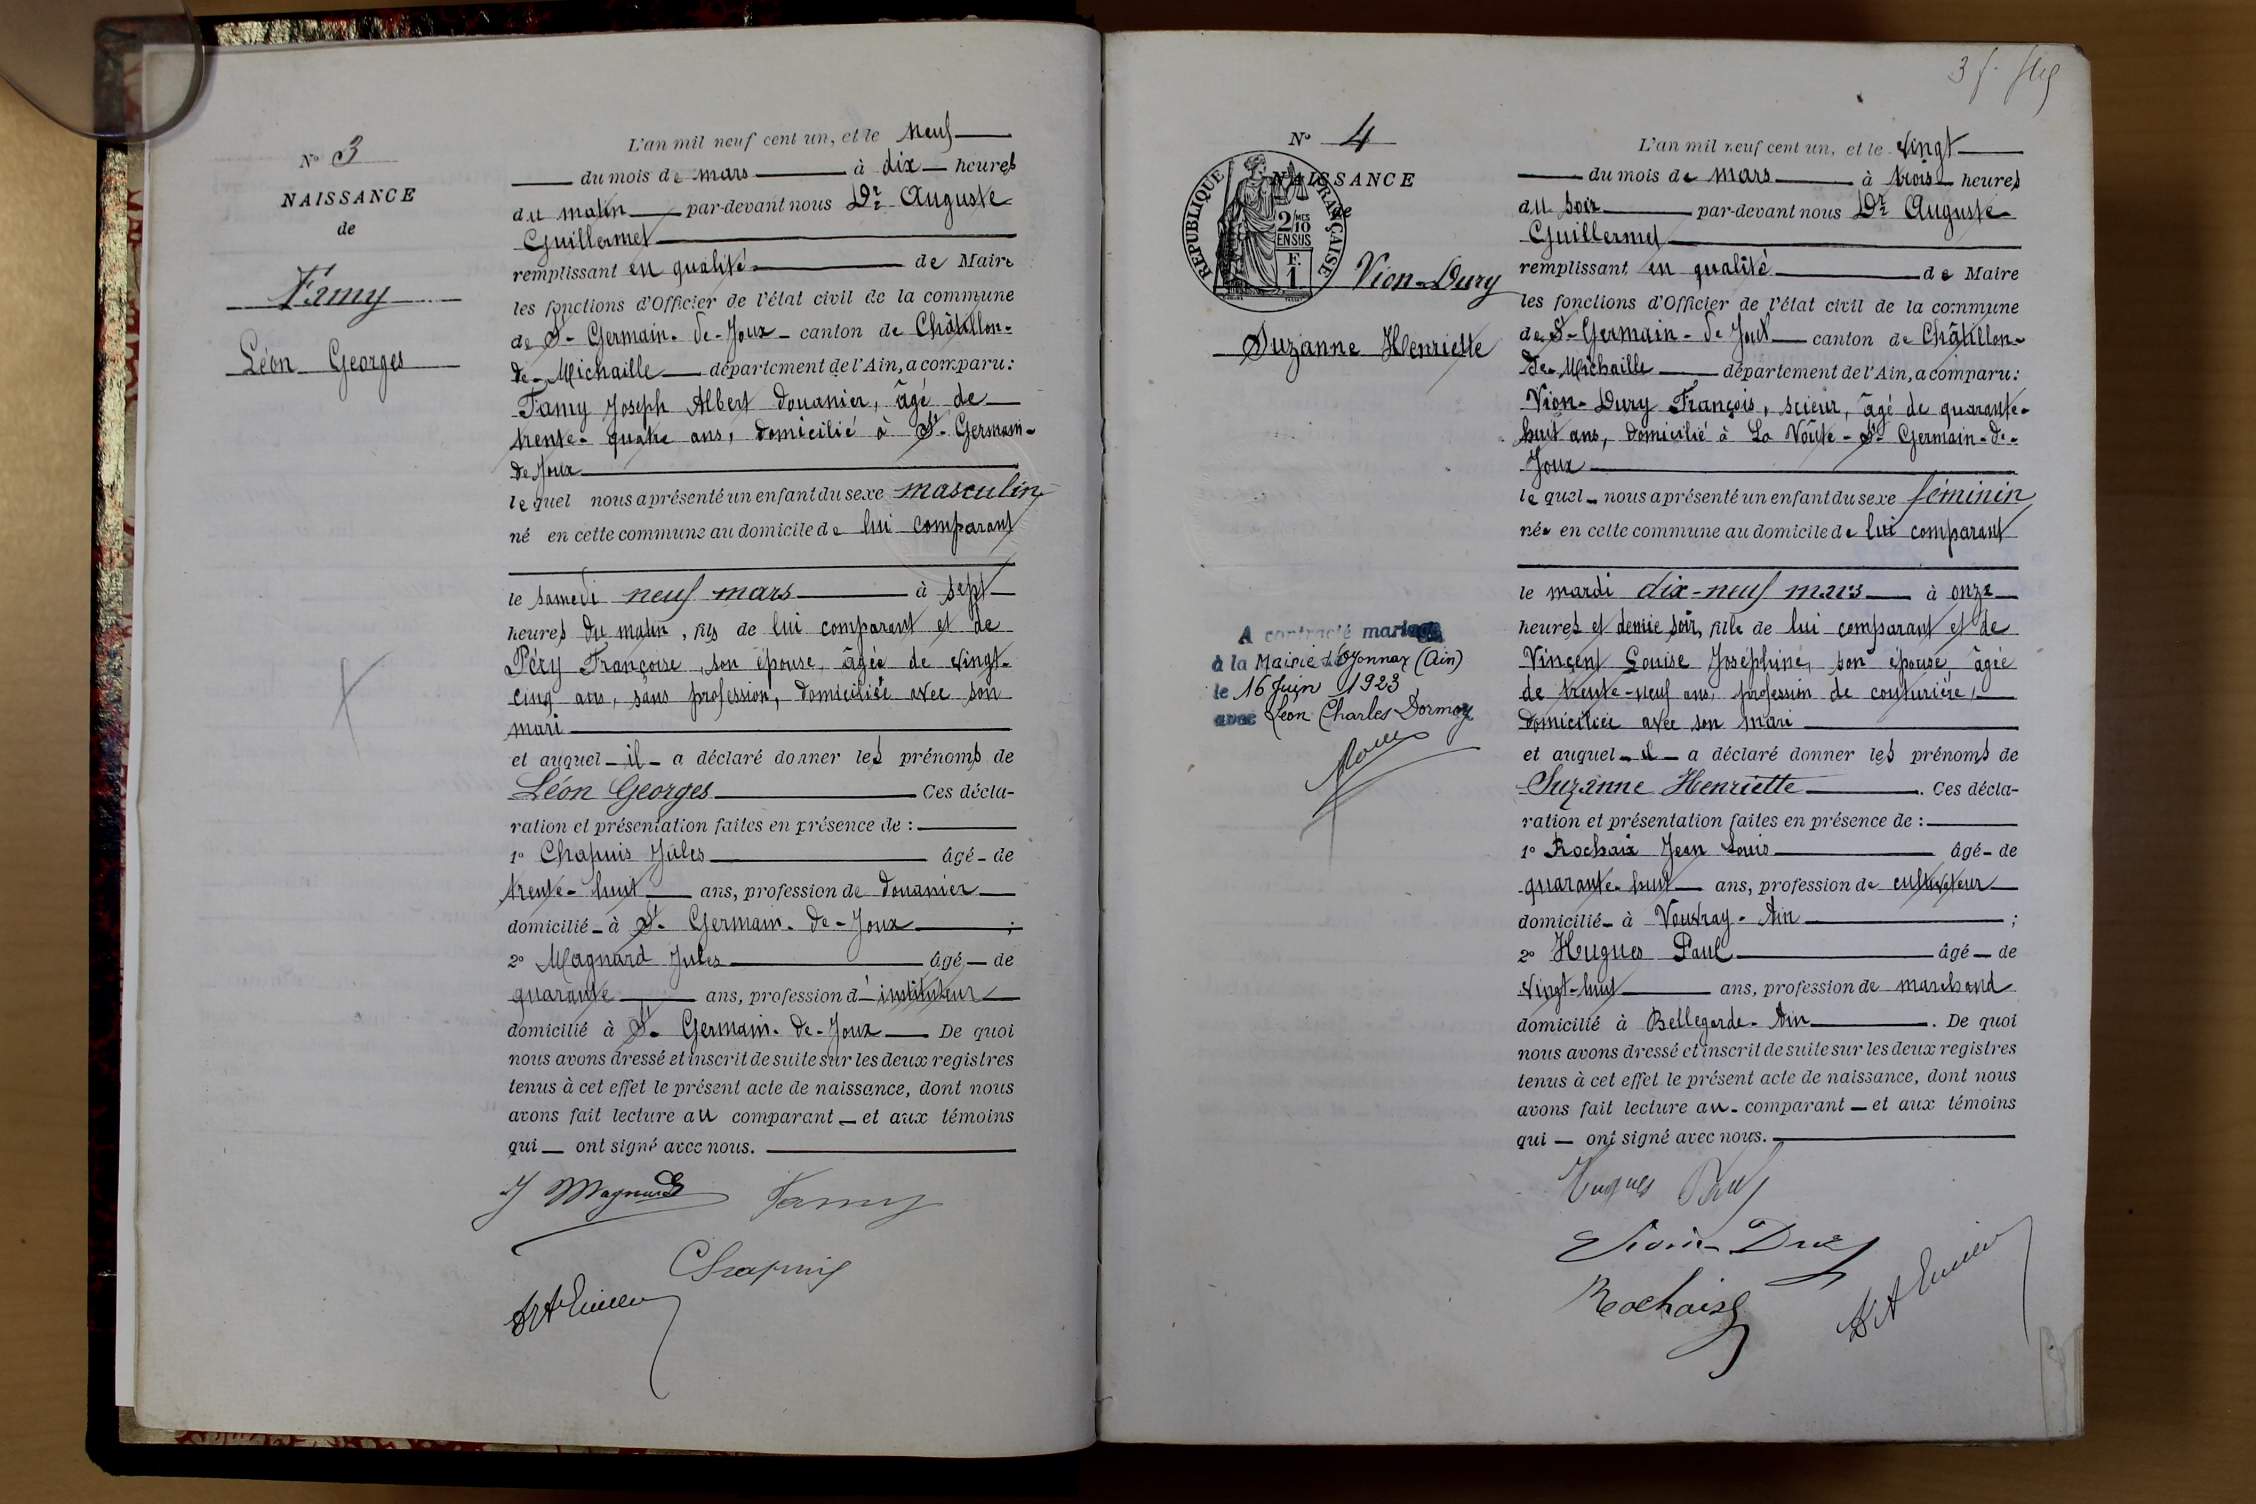 N° 3
NAISSANCE
de
Famy
Léon Georges
L'an mil neuf cent un, et le neuf
du mois de mars à dix heures
du matin par-devant nous Dr Auguste
Guillermet
remplissant en qualité de Maire
les fonctions d'Officier de l'état civil de la commune
de St-Germain-de-Joux canton de Châtillon-
de-Michaille département de l'Ain, a comparu :
Famy Joseph Albert douanier, âgé de
trente-quatre ans, domicilié à St-Germain-
de-Joux
lequel nous a présenté un enfant du sexe masculin
né en cette commune au domicile de lui comparant
le samedi neuf mars à sept
heures du matin, fils de lui comparant et de
Péry Françoise, son épouse, âgée de vingt-
cinq ans, sans profession, domiciliée avec son
mari
et auquel il a déclaré donner les prénoms de
Léon Georges Ces décla-
ration et présentation faites en présence de :
1° Chapuis Jules âgé de
trente-huit ans, profession de douanier
domicilié à St-Germain-de-Joux ;
2° Magnard Jules âgé de
quarante ans, profession d'instituteur
domicilié à St-Germain-de-Joux De quoi
nous avons dressé et inscrit de suite sur les deux registres
tenus à cet effet le présent acte de naissance, dont nous
avons fait lecture au comparant et aux témoins
qui ont signé avec nous.
J Magnard Famy
Chapuis
N° 4
NAISSANCE
de
RÉPUBLIQUE FRANÇAISE
2 MES
10
EN SUS
F.
1
Vion-Dury
Suzanne Henriette
A contracté mariage
à la Mairie d'Oyonnax (Ain)
le 16 Juin 1923
avec Léon Charles Dormoy
L'an mil neuf cent un, et le vingt
du mois de mars à trois heures
du soir par-devant nous Dr Auguste
Guillermet
remplissant en qualité de Maire
les fonctions d'Officier de l'état civil de la commune
de St-Germain-de-Joux canton de Châtillon-
de-Michaille département de l'Ain, a comparu :
Vion-Dury François, scieur, âgé de quarante-
huit ans, domicilié à La Voûte-St-Germain-de-
Joux
lequel nous a présenté un enfant du sexe féminin
née en cette commune au domicile de lui comparant
le mardi dix-neuf mars à onze
heures et demie soir, fille de lui comparant et de
Vinçent Louise Joséphine, son épouse, âgée
de trente-neuf ans, profession de couturière,
domiciliée avec son mari
et auquel il a déclaré donner les prénoms de
Suzanne Henriette . Ces décla-
ration et présentation faites en présence de :
1° Rochaix Jean Louis âgé de
quarante-huit ans, profession de cultivateur
domicilié à Vouvray-Ain ;
2° Hugues Paul âgé de
vingt-huit ans, profession de marchand
domicilié à Bellegarde-Ain . De quoi
nous avons dressé et inscrit de suite sur les deux registres
tenus à cet effet le présent acte de naissance, dont nous
avons fait lecture au comparant et aux témoins
qui ont signé avec nous.
Hugues Paul
Rochaix